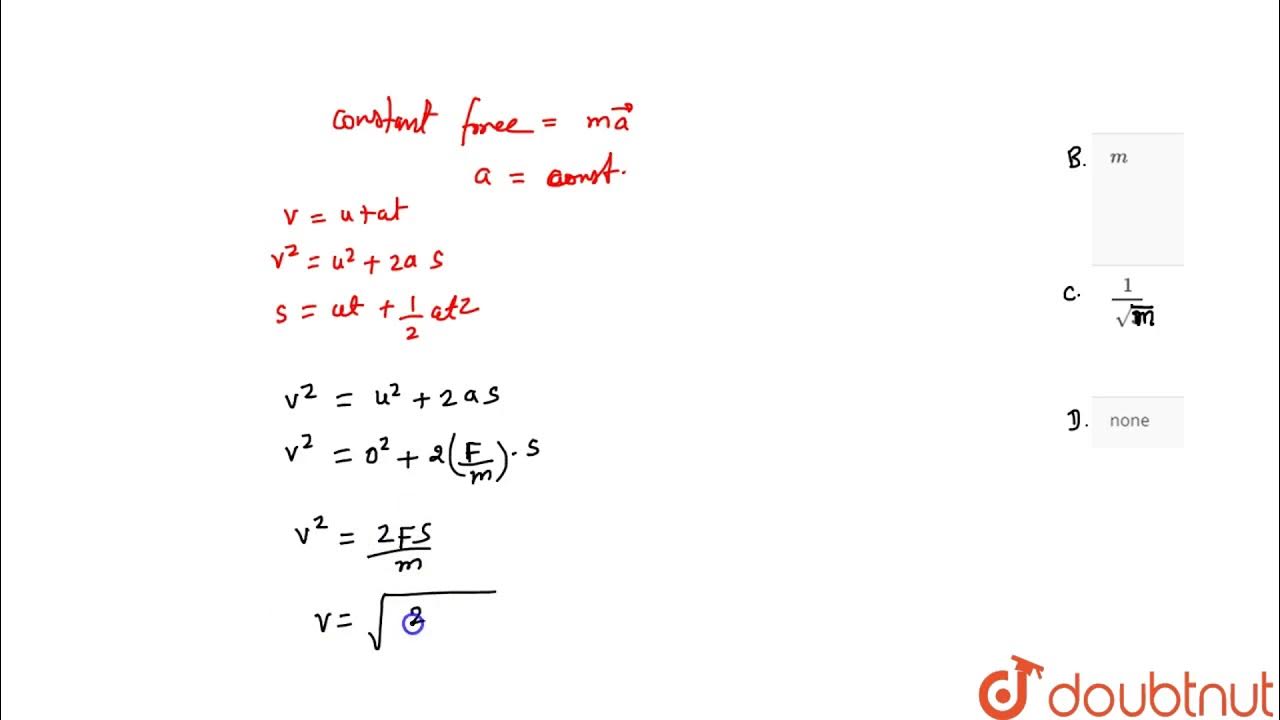 constant force = ma⃗
a = const.
v = u+at
v² = u² + 2a s
s = ut + 1/2 at2
v² = u² + 2as
v² = 0² + 2(F/m)·s
v² = 2FS/m
v = √2
B. m
C. 1/√m
D. none
doubtnut